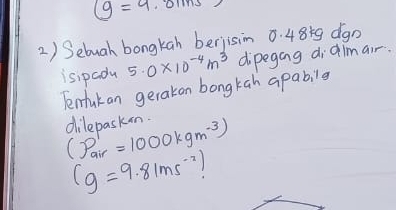 (g = 9.81ms
2) Sebuah bongkah berjisim 0.48kg dgn
isipadu 5.0×10⁻⁴m³ dipegang di dlm air.
Tentukan gerakan bongkah apabila
dilepaskan.
(ρair = 1000kgm⁻³)
(g = 9.81ms⁻²)